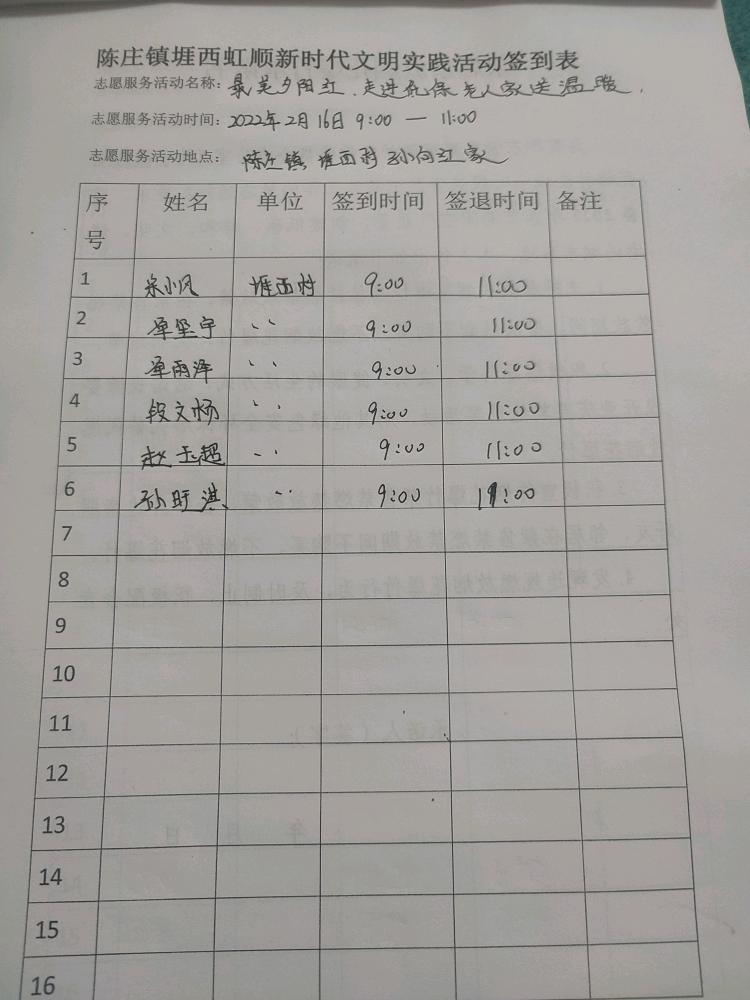 陈庄镇堐西虹顺新时代文明实践活动签到表
志愿服务活动名称：最美夕阳红,走进低保老人家送温暖.
志愿服务活动时间：2022年2月16日9:00 — 11:00
志愿服务活动地点：陈庄镇堐西村孙向江家
序号 姓名 单位 签到时间 签退时间 备注
1 宋小风 堐西村 9:00 11:00
2 单坚宇 〃 9:00 11:00
3 单雨泽 〃 9:00 11:00
4 段文杨 〃 9:00 11:00
5 赵玉超 〃 9:00 11:00
6 孙旺淇 〃 9:00 11:00
7
8
9
10
11
12
13
14
15
16